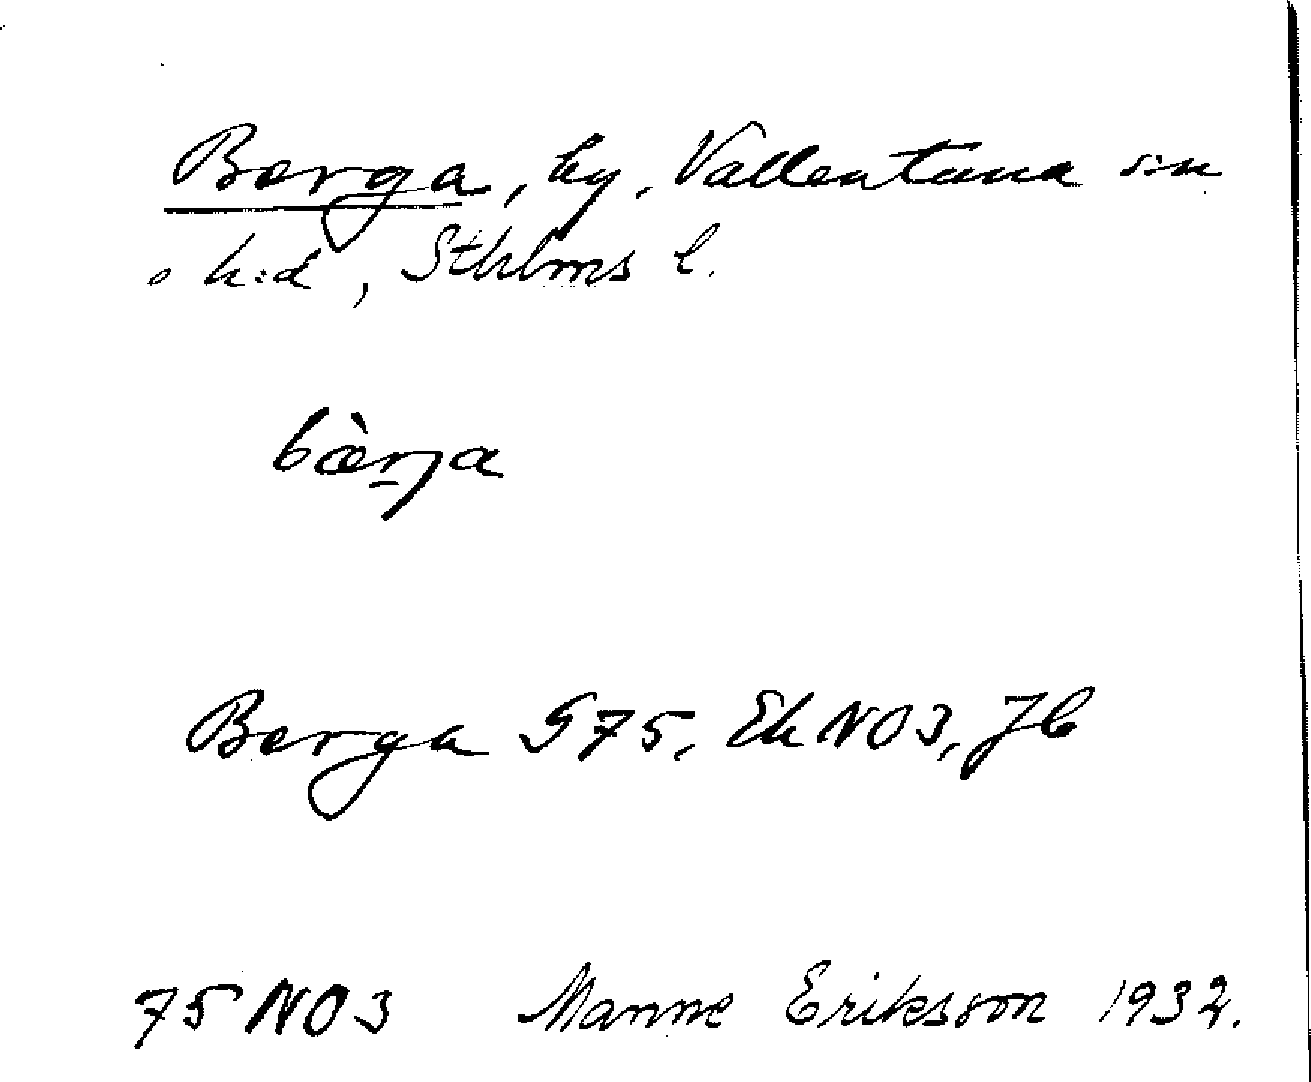 Berga, by, Vallentuna sn
o h:d, Sthlms l.
bæ̀rja
Berga G75, Ek NO3, Jb
75 NO3 Manne Eriksson 1932.